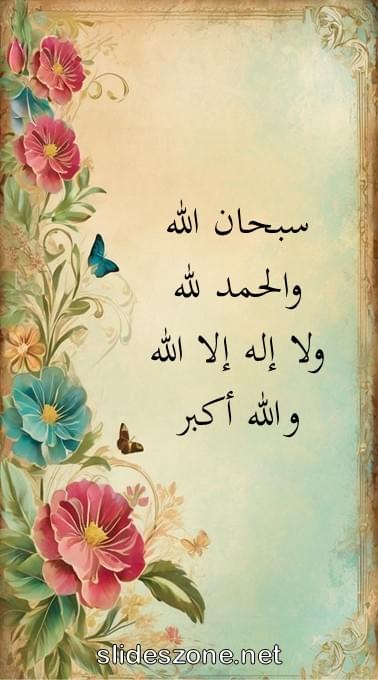 سبحان الله
والحمد لله
ولا إله إلا الله
والله أكبر
slideszone.net